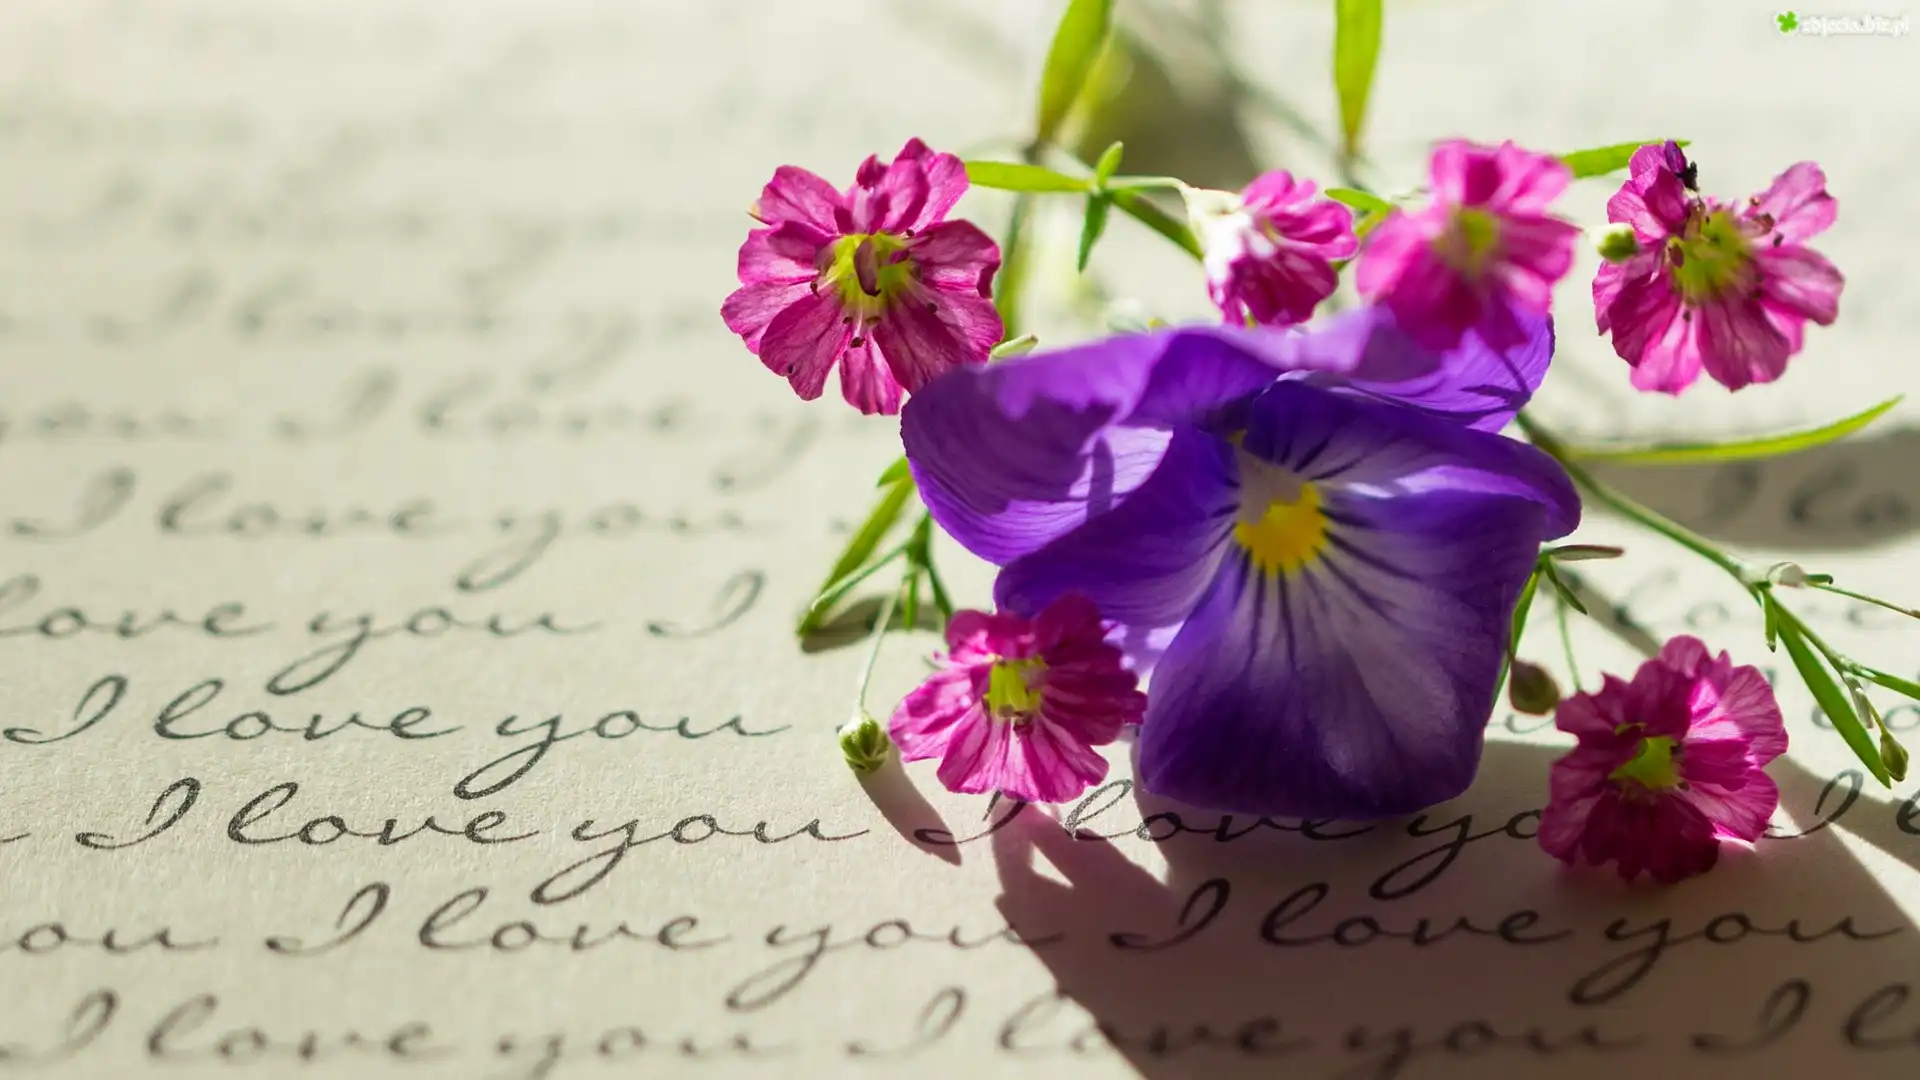 zdjecia.biz.pl
I love you
I love you
love you I
I love you
I love you I love you I
you I love you I love you
I love you I love you I